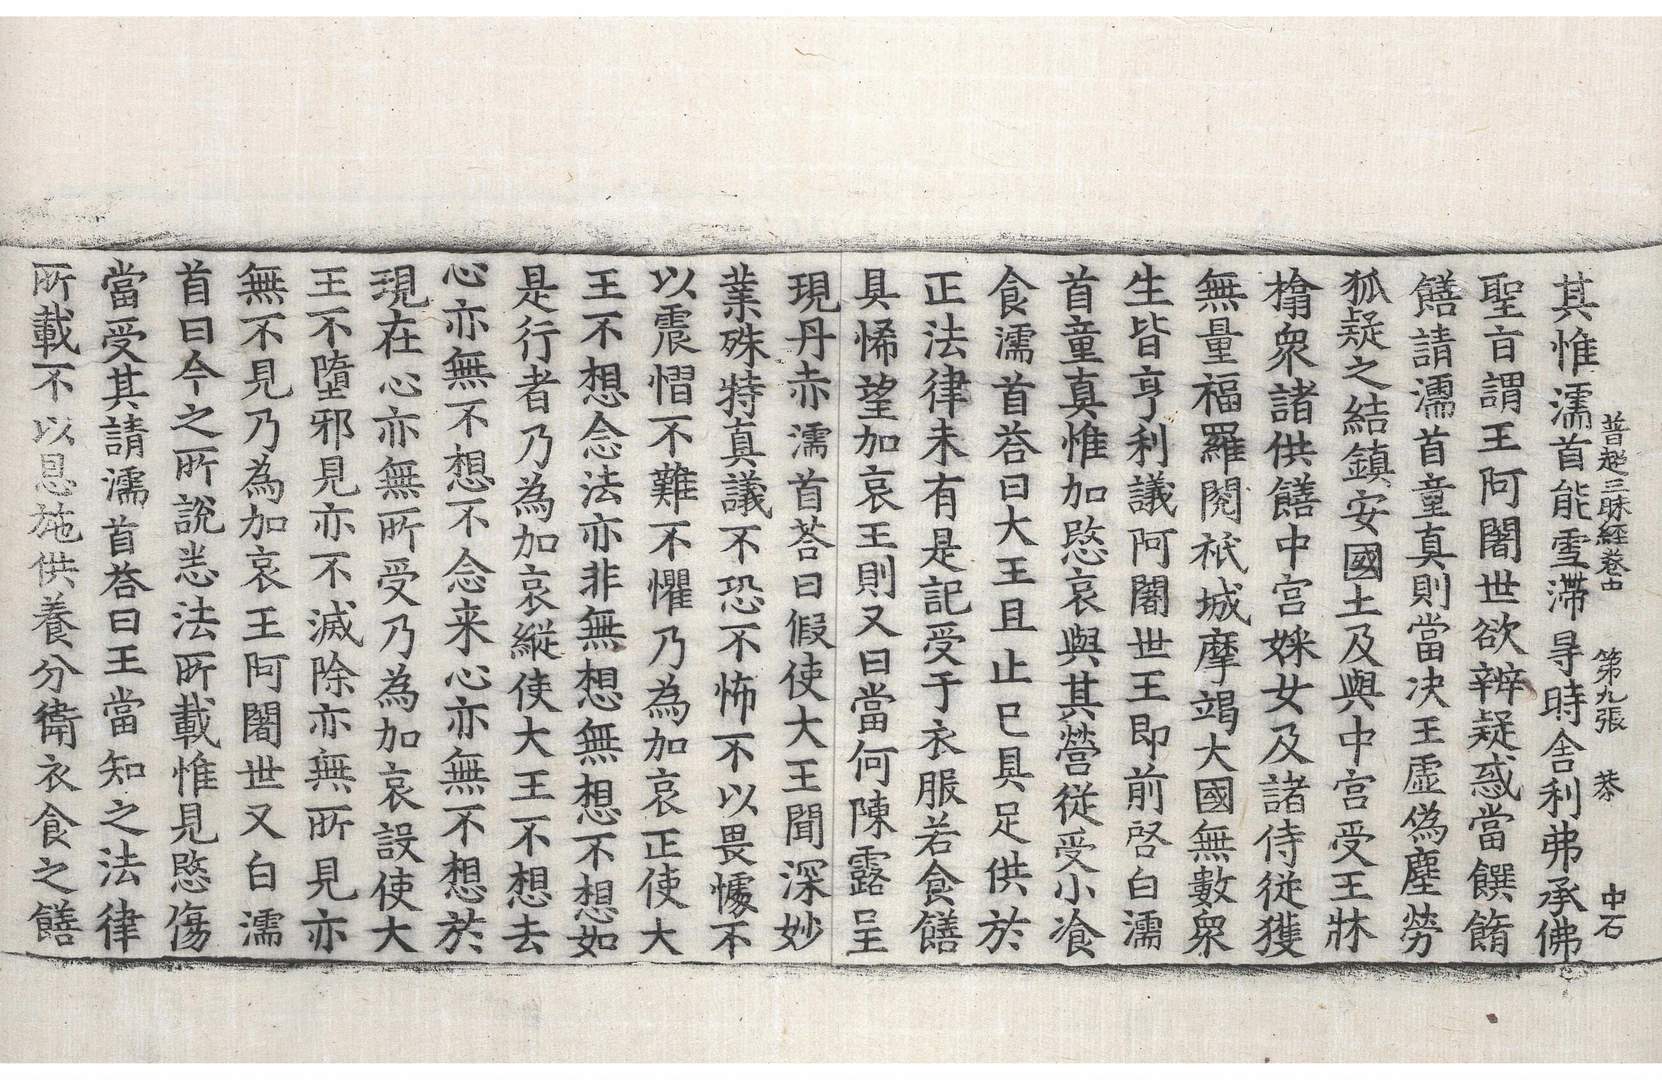 普超三昧經卷中 第九張 恭
中石
其惟濡首能雪滯㝵時舍利弗承佛
聖旨謂王阿闍世欲辨疑惑當饌餚
饍請濡首童真則當决王虛偽塵勞
狐疑之結鎮安國土及與中宮受王牀
榻衆諸供饍中宮婇女及諸侍從獲
無量福羅閱祇城摩竭大國無數衆
生皆亨利議阿闍世王即前啓白濡
首童真惟加愍哀與其營從受小飡
食濡首荅曰大王且止已具足供於
正法律未有是記受于衣服若食饍
具悕望加哀王則又曰當何陳露呈
現丹赤濡首荅曰假使大王聞深妙
業殊特真議不恐不怖不以畏懅不
以震慴不難不懼乃為加哀正使大
王不想念法亦非無想無想不想如
是行者乃為加哀縱使大王不想去
心亦無不想不念来心亦無不想於
現在心亦無所受乃為加哀設使大
王不墮邪見亦不滅除亦無所見亦
無不見乃為加哀王阿闍世又白濡
首曰今之所說恙法所載惟見愍傷
當受其請濡首荅曰王當知之法律
所載不以恩施供養分衛衣食之饍